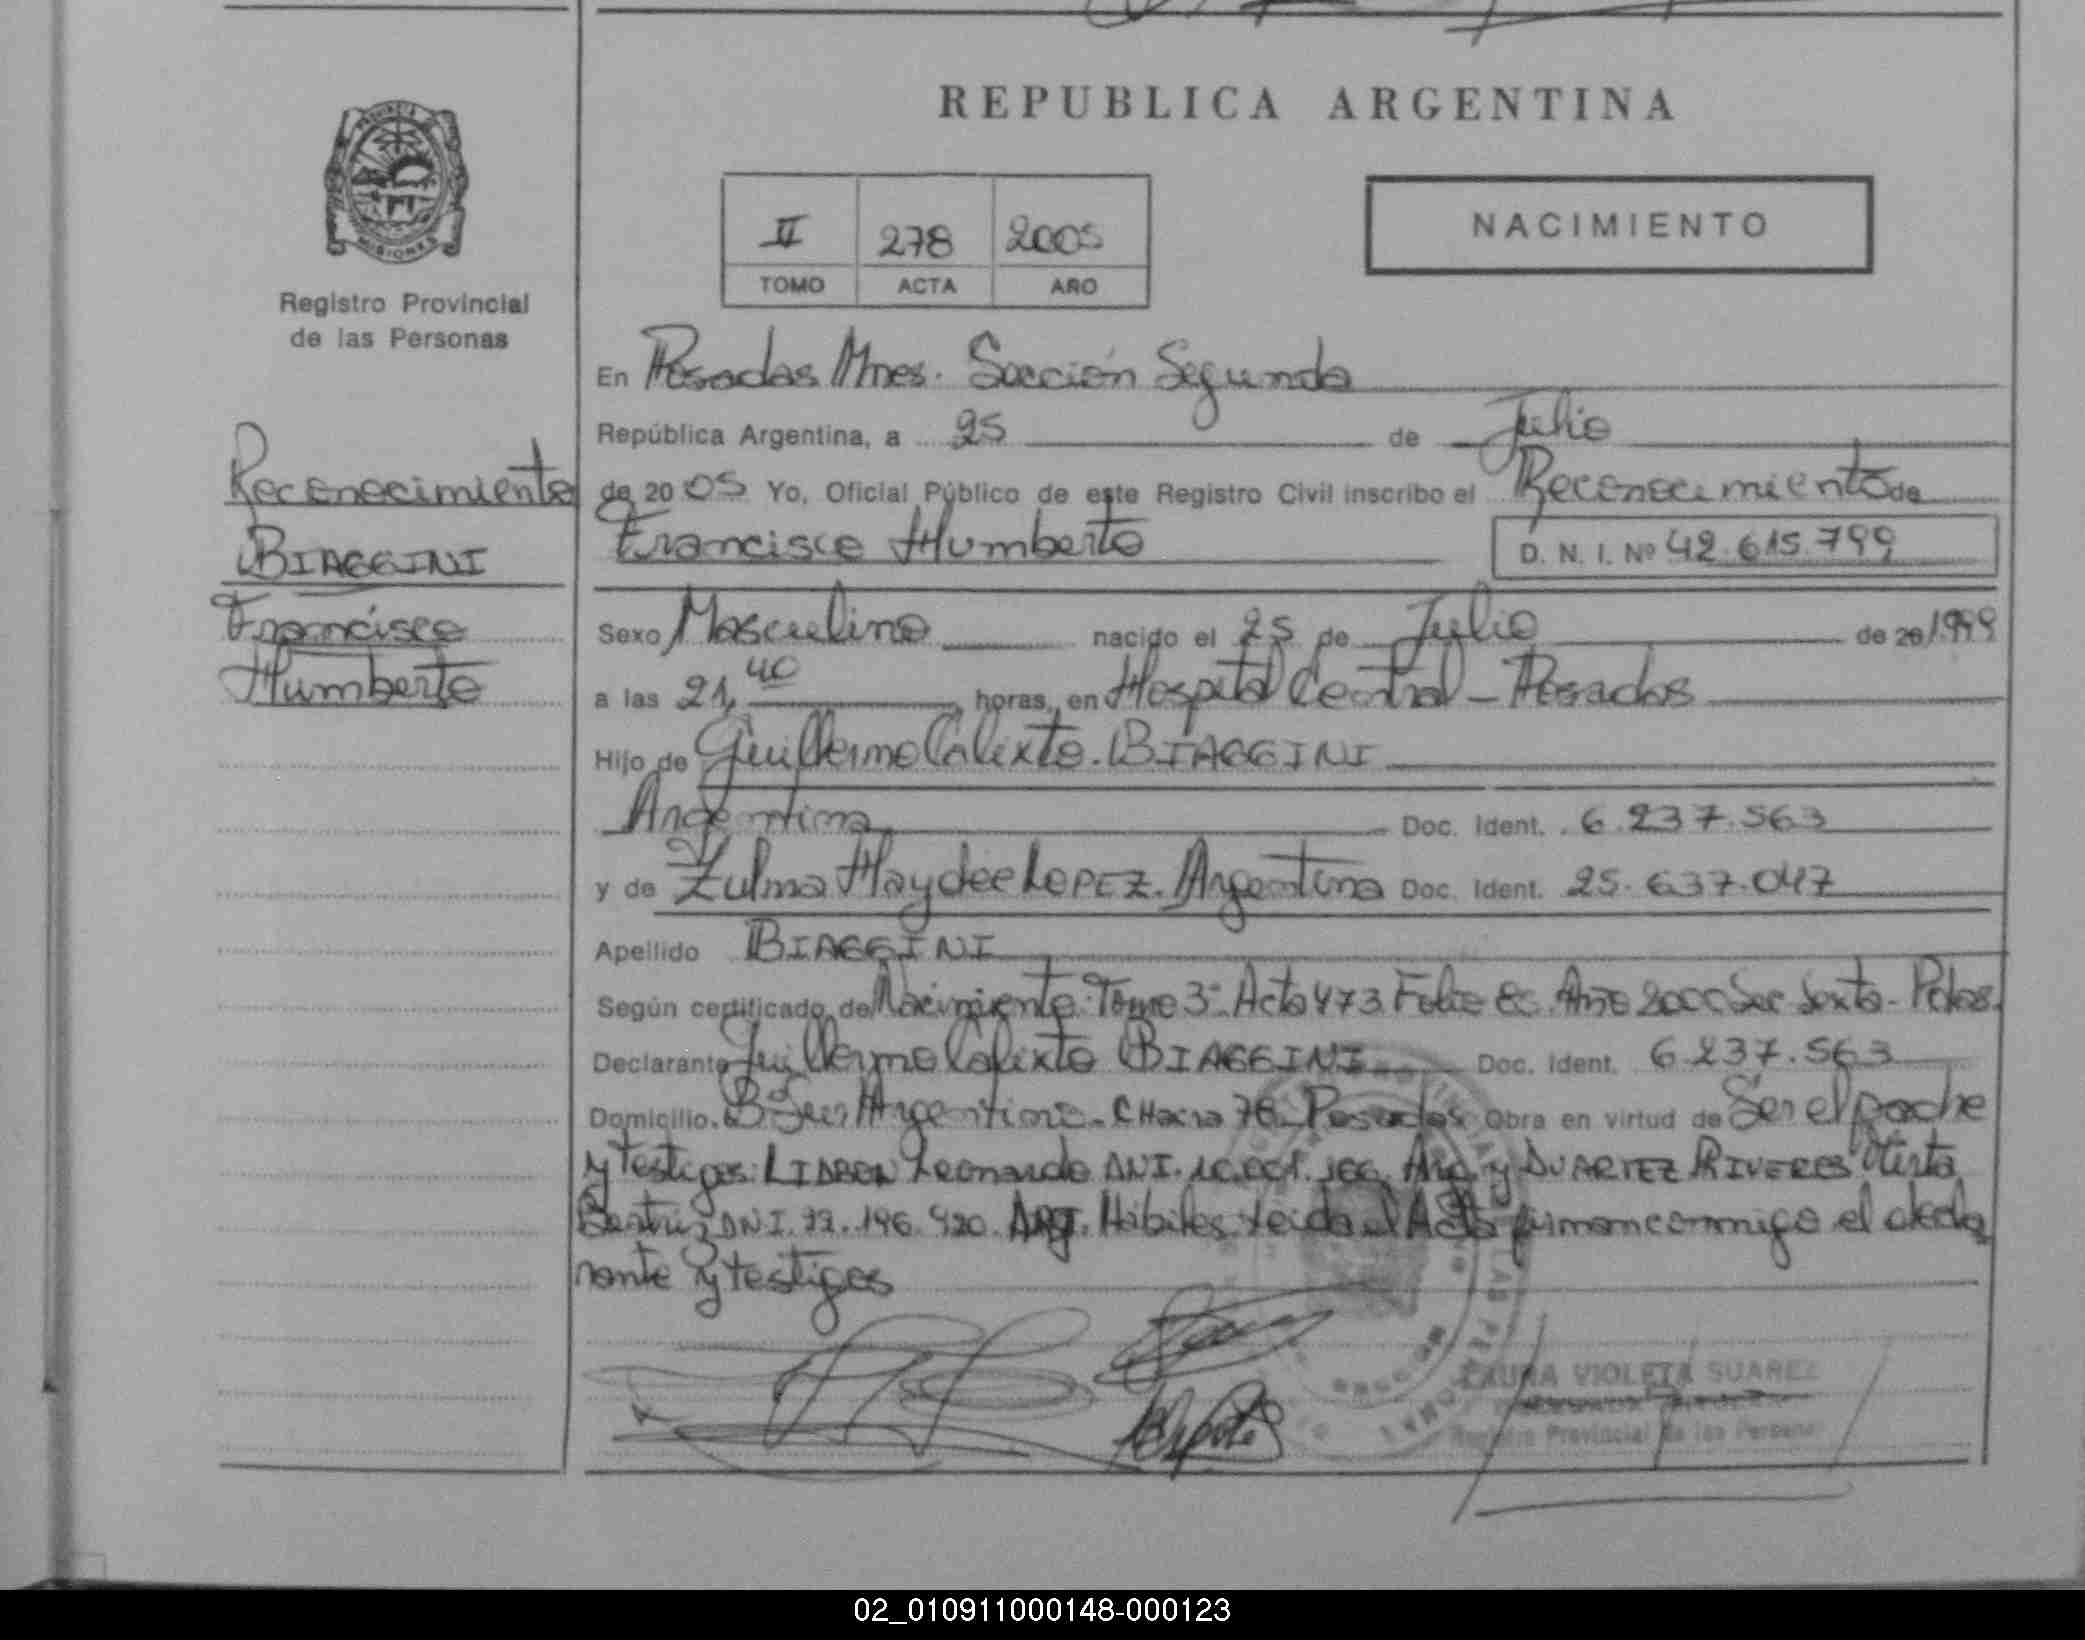 REPUBLICA ARGENTINA
PROVINCIA DE MISIONES
Registro Provincial
de las Personas
II 278 2005
TOMO ACTA AÑO
NACIMIENTO
Reconocimiento
BIAGGINI
Francisco
Humberto
En Posadas Mnes. Sección Segunda
República Argentina, a 25 de Julio
de 2005 Yo, Oficial Público de este Registro Civil inscribo el Reconocimiento de
Francisco Humberto D. N. I. Nº 42.615.799
Sexo Masculino nacido el 25 de Julio de 20/1999
a las 21,40 horas, en Hospital Central - Posadas
Hijo de Guillermo Calixto. BIAGGINI
Argentina Doc. Ident. 6.237.563
y de Zulma Haydee LOPEZ. Argentina Doc. Ident. 25.637.047
Apellido BIAGGINI
Según certificado de Nacimiento. Tomo 3º Acta 473 Folio Año 2000 Sec Sexta - Pdas.
Declarante Guillermo Calixto BIAGGINI Doc. Ident. 6.237.563
Domicilio. Bº Sur Argentino. CHacra 76 Posadas Obra en virtud de Ser el padre
y testigos: Leonardo DNI. 10.001.166. Arg. y DUARTEZ RIVEROS Mirta
Beatriz DNI. 196.420. Arg. Hábiles. Leida el Acta firman conmigo el decla
rante y testigos
LAURA VIOLETA SUAREZ
Registro Provincial de las Personas
02_010911000148-000123